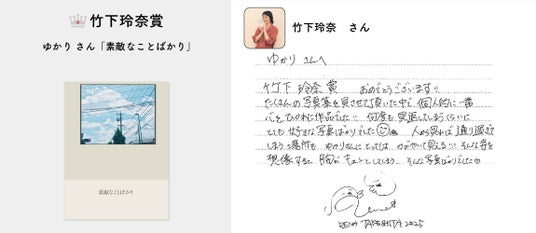 竹下玲奈賞
ゆかり さん「素敵なことばかり」
素敵なことばかり
竹下玲奈 さん
ゆかり さんへ
竹下 玲奈 賞 おめでとうございます!!
たくさんの写真集を見させて頂いた中で 個人的に一番
心をひかれた作品でした!! 何度も見返してしまうくらいに
とても 好きな写真ばかりでした 人が見れば 通り過ぎて
しまう場所も ゆかりさんにとっては かがやいて見える!!! そんな事を
想像すると 胸が キュンとしてしまう そんな写真ばかりでした
RENA TAKESHITA 2025